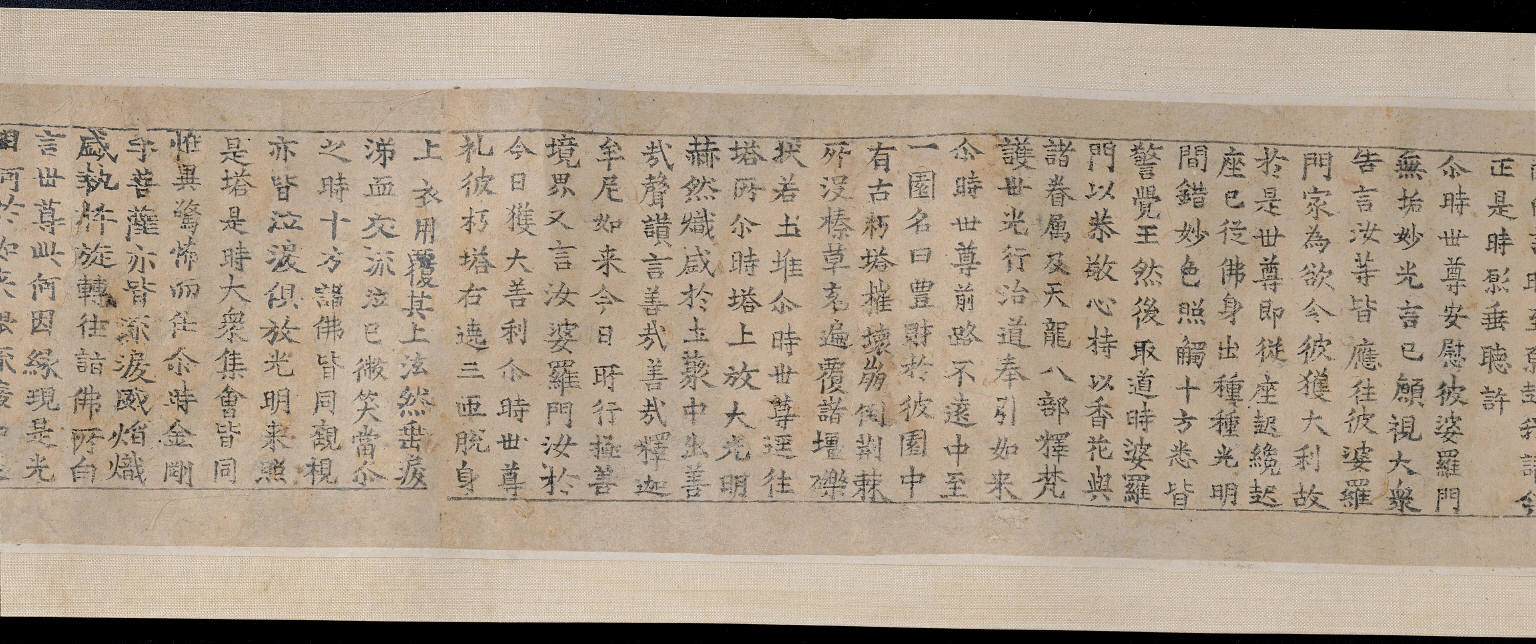 正是時愍垂聽許
尒時世尊安慰彼婆羅門
無垢妙光言已顧視大衆
告言汝等皆應往彼婆羅
門家為欲令彼獲大利故
於是世尊即從座起纔起
座已從佛身出種種光明
間錯妙色照觸十方悉皆
警覺王然後取道時婆羅
門以恭敬心持以香花與
諸眷属及天龍八部釋梵
護世光行治道奉引如来
尒時世尊前路不遠中至
一園名曰豊財於彼園中
有古朽塔摧壞崩倒荆棘
所没榛草充遍覆諸壇礫
状若土堆尒時世尊逕往
塔所尒時塔上放大光明
赫然熾盛於土藂中出善
㢤聲讃言善㢤善㢤釋迦
牟尼如来今日所行極善
境界又言汝婆羅門汝於
今日獲大善利尒時世尊
礼彼朽塔右遶三匝脱身
上衣用覆其上泫然垂淚
涕血交流泣已微笑當尒
之時十方諸佛皆同觀視
亦皆泣淚俱放光明来照
是塔是時大衆集會皆同
恠異驚怖而住尒時金剛
手菩薩亦皆流淚威焰熾
盛執杵旋轉往詣佛所白
言世尊此何因緣現是光